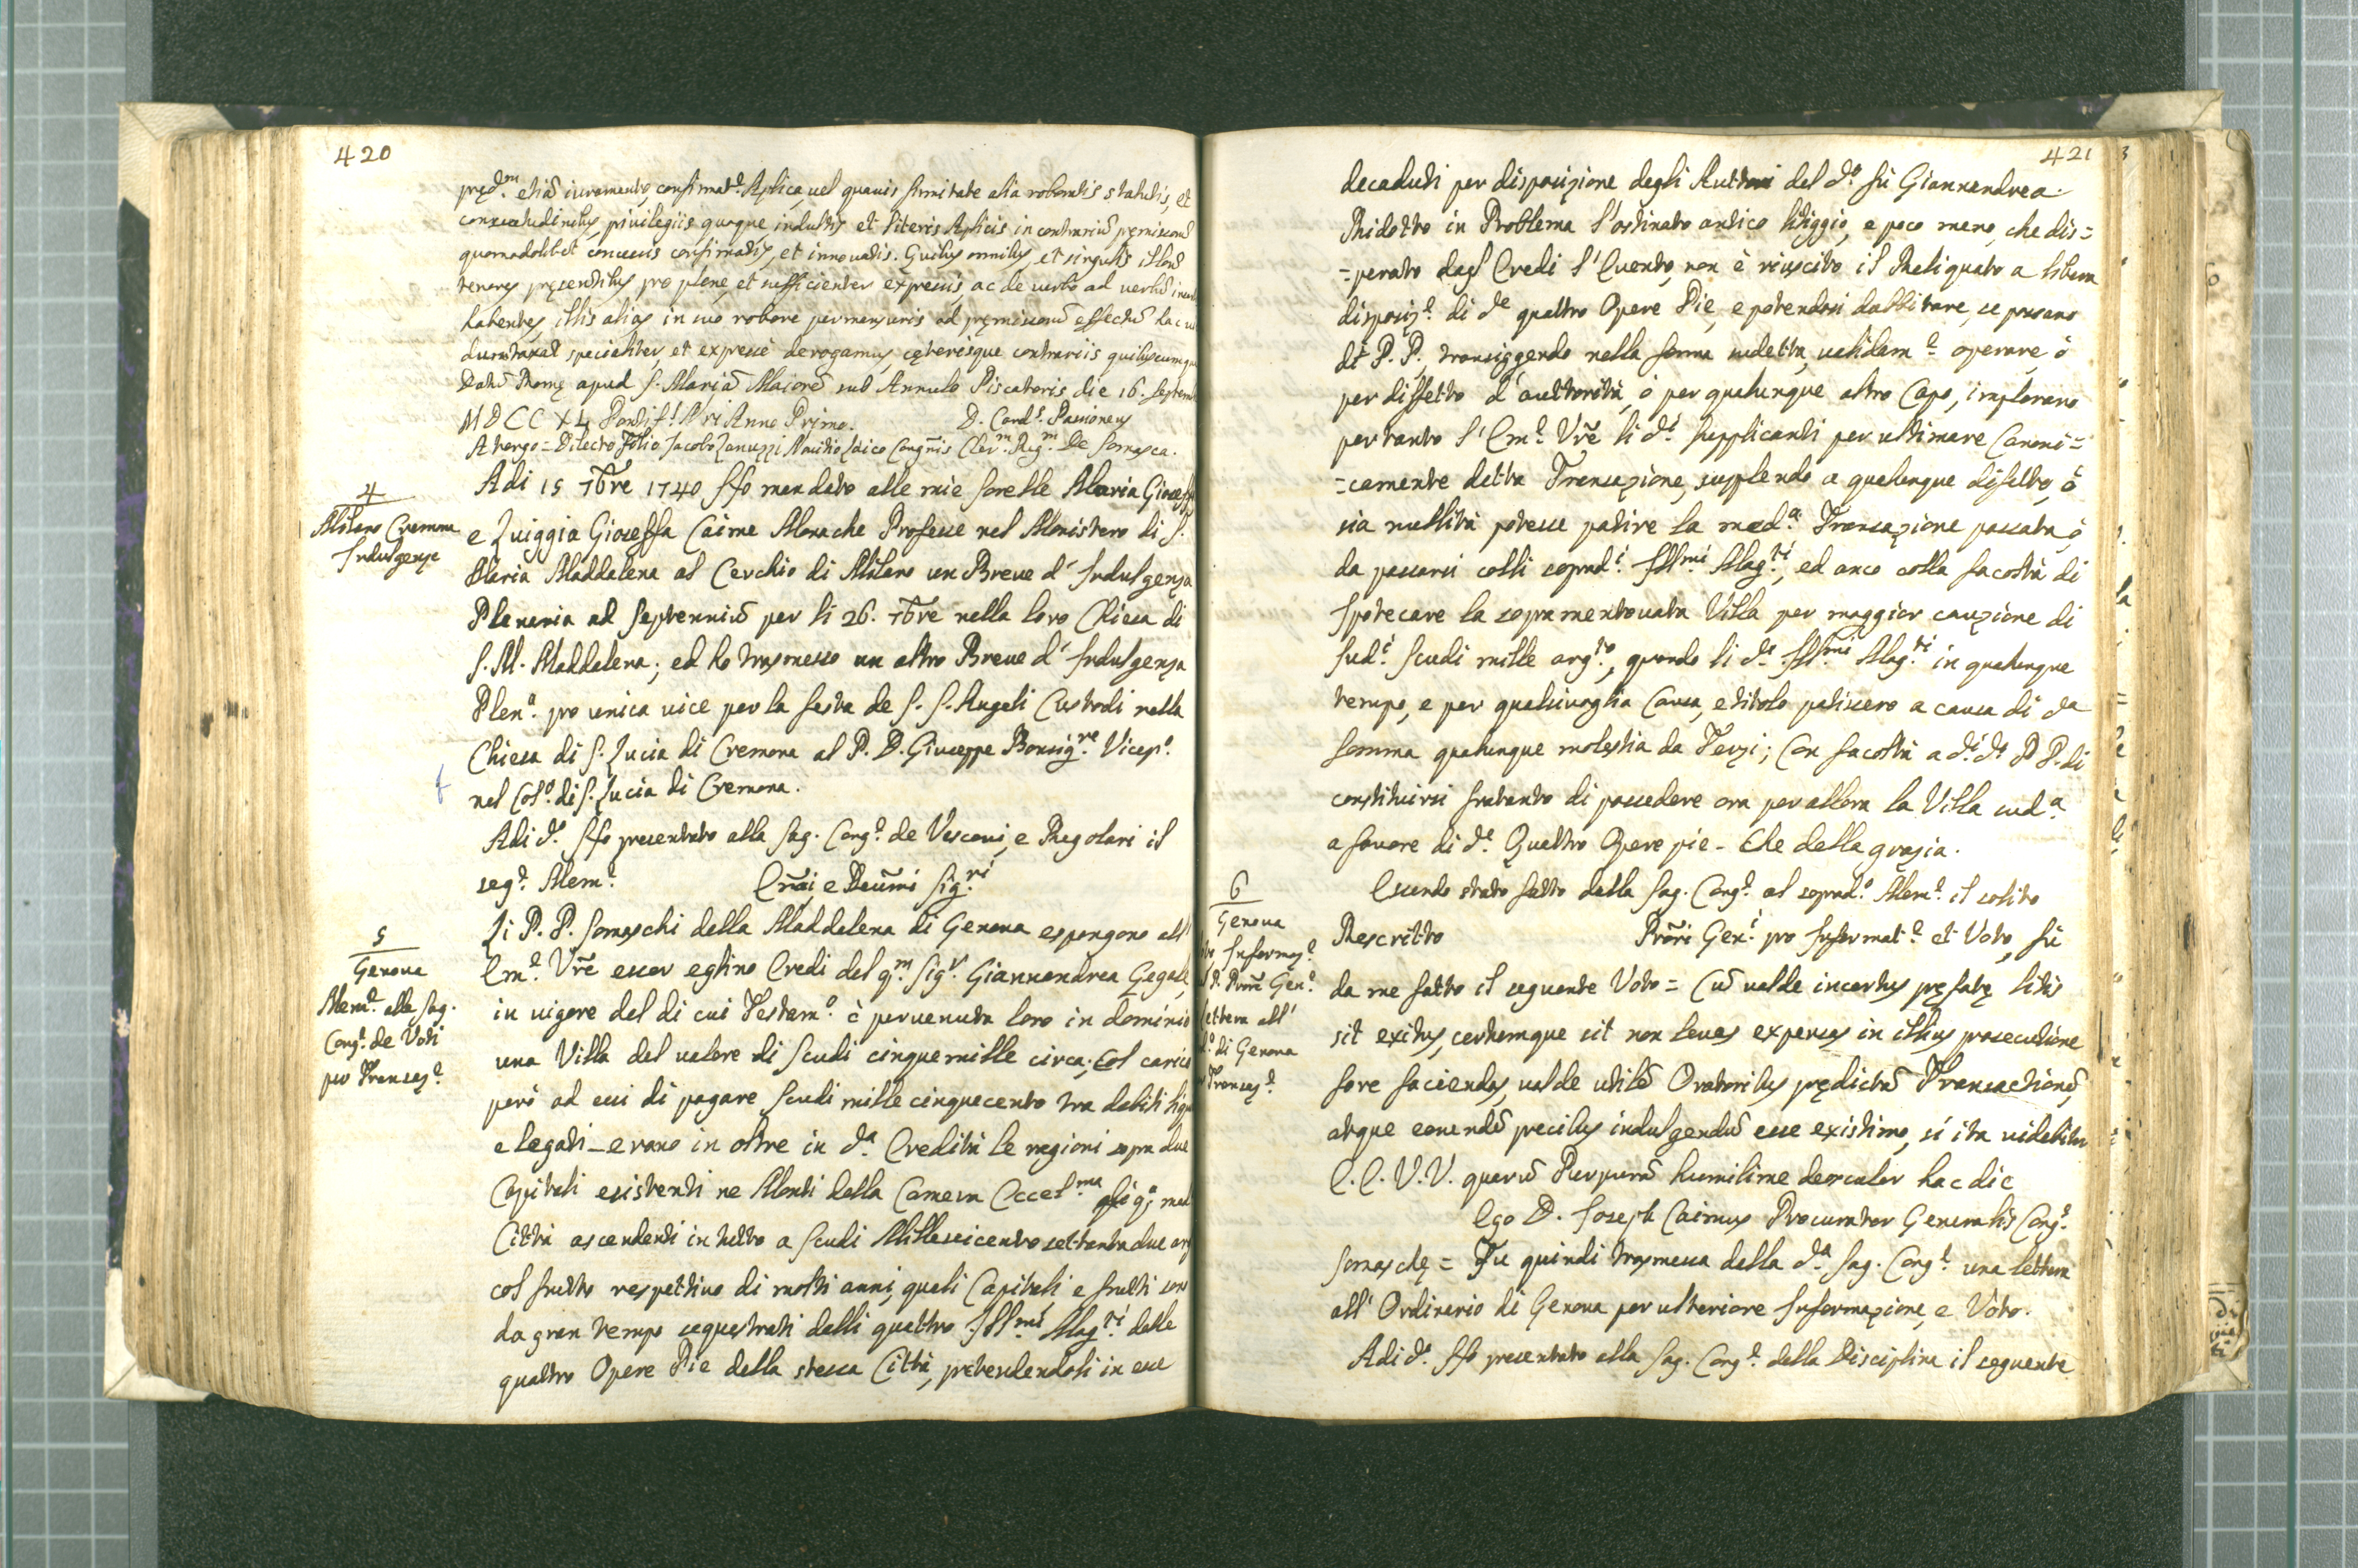 420
pręd.m etiā iuramento, confirmat.e Aplica, uel quauis firmitate alia roboratis statutis, et
consuetudinibus, priuilegiis quoque, indultis et literis Aplicis in contrariū pręmissorū
quomodolibet concessis confirmatis, et innouatis. Quibus omnibus, et singulis illorū
tenores pręsentibus pro plene, et sufficienter expressis, ac de uerbo ad uerbū
habentes, illis alias in suo robore permansuris ad pręmissorū effectū hac
dumtaxat specialiter, et expresse derogamus, cęterisque contrariis quibuscumque
Datū Romę apud S. Mariā Maiorē sub Annulo Piscatoris die 16. Septemb
MDCCXL Pontif.s Nri Anno Primo. D. Card.s Passioneus
A tergo = Dilecto Filio Jacobo Zanuzzi Nouitio Laico Congñis Cler.m Reg.m De Somasca.
4
Milano Cremona
Indulgenze
Adi 15 7bre 1740 Ho mandato alle mie sorelle Maria Gioseffa
e Luiggia Gioseffa Caime Monache Professe nel Monistero di S.
Maria Maddalena al Cerchio di Milano un Breue d' Indulgenza
Plenaria ad Septenniū per li 26. 7bre nella loro Chiesa di
S. M. Maddalena; ed ho trasmesso un altro Breue d' Indulgenza
Plen.a pro unica uice per la festa de S. S. Angeli Custodi nella
Chiesa di S. Lucia di Cremona al P. D. Giuseppe Bonsig.re Vicep.o
nel Col.o di S. Lucia di Cremona.
Adi d.o Ho presentato alla Sag. Cong.e de Vescoui, e Regolari il
seg.e Mem.e Em̃i e Reum̃i Sig.ri
5
Genoua
Mem.e alla Sag.
Cong.e de Voti
per Transaz.e
Li P. P. Somaschi della Maddalena di Genoua espongono all'
Em.e Vr̃e esser eglino Eredi del q.m Sig.r Giannandrea Gegale,
in uigore del di cui Testam.o è peruenuta loro in dominio
una Villa del ualore di Scudi cinquemille circa; Col carico
però ad essi di pagare Scudi mille cinquecento tra debiti
e legati - erano in oltre in d.a Eredità le ragioni sopra due
Capitali esistenti ne Monti della Camera Eccel.ma
Città ascendenti in tutto a Scudi Milleseicento settantadue
col frutto respettiuo di molti anni, quali Capitali, e frutti
da gran tempo sequestrati dalli quattro Ill.mi Mag.ti delle
quattro Opere Pie della stessa Città, pretendendoli in esse
421
decaduti per disposizione degli Auttori del d.o fù Giannandrea.
Ridotto in Problema l'ostinato antico litiggio, e poco meno, che dis=
=perato dagl' Eredi l' Euento, non è riuscito il Reliquato a libera
disposiz.e di d.e quattro Opere Pie, e potendosi dubbitare, se possano
d.i P. P., transiggendo nella forma sudetta, ualidam.e operare, ò
per diffetto d' auttorità, ò per qualunque altro Capo, implorano
pertanto l' Em.e Vr̃e li d.i Supplicanti per ultimare Canoni=
=camente detta Transazione, supplendo a qualunque difetto, ò
sia nullità potesse patire la med.a Transazione passata, ò
da passarsi colli soprad.i Ill.mi Mag.ti, ed anco colla facoltà di
Ipotecare la sopramentouata Villa per maggior cauzione di
sud.i Scudi mille arg.to, quando li d.i Ill.mi Mag.ti in qualunque
tempo, e per qualsiuoglia Causa, e titolo patissero a causa di d.a
Somma qualunque molestia da Terzi; Con facoltà a d.i P P. di
constituirsi fratanto di possedere ora per allora la Villa sud.a
a fauore di d.e Quattro Opere pie - Che della grazia.
6
Genoua
Informaz.e
P. Procr̃e Gen.e
lettera all'
di Genoua
Transaz.e
Essendo stato fatto dalla Sag. Cong.e al soprad.o Mem.e il solito
Rescritto Prōri Gen.i pro Informat.e et Voto, fù
da me fatto il seguente Voto = Cū ualde incertus pręfatę litis
sit exitus, certumque sit non leues expensas in illius prosecutione
fore faciendas, ualde utilē Oratoribus prędictā Transactionē,
atque eorundē precibus indulgendū esse existimo, si ita uidebitur
E. E. V. V. quarū Purpurā humilime deosculor hac die
Ego D. Joseph Caimus Procurator Generalis Cong.s
Somaschę = Fu quindi trasmessa dalla d.a Sag. Cong.e una lettera
all' Ordinario di Genoua per ulteriore Informazione, e Voto.
Adi d.o Ho presentato alla Sag. Cong.e della Disciplina il seguente